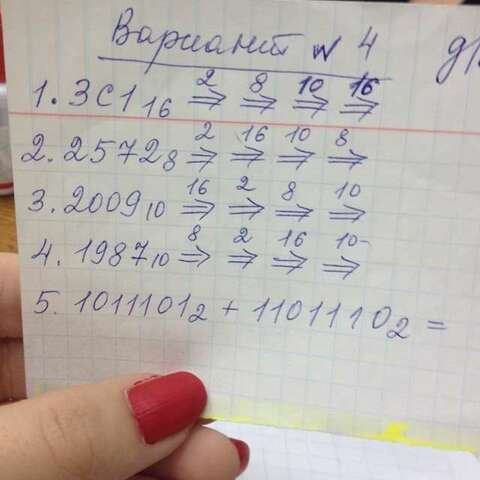 Вариант N 4
1. 3C1₁₆ ⇒² ⇒⁸ ⇒¹⁰ ⇒¹⁶
2. 2572₈ ⇒² ⇒¹⁶ ⇒¹⁰ ⇒⁸
3. 2009₁₀ ⇒¹⁶ ⇒² ⇒⁸ ⇒¹⁰
4. 1987₁₀ ⇒⁸ ⇒² ⇒¹⁶ ⇒¹⁰
5. 1011101₂ + 1101110₂ =